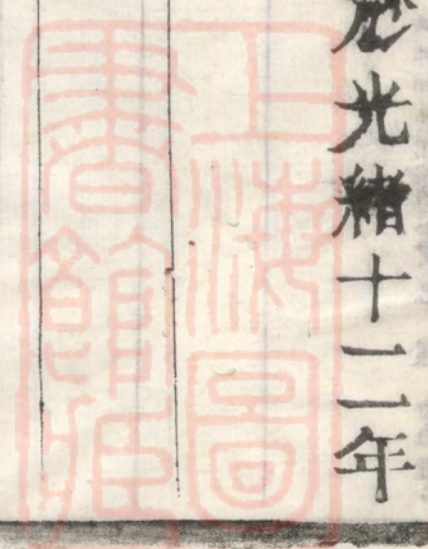 光緒十二年
上海圖
書館